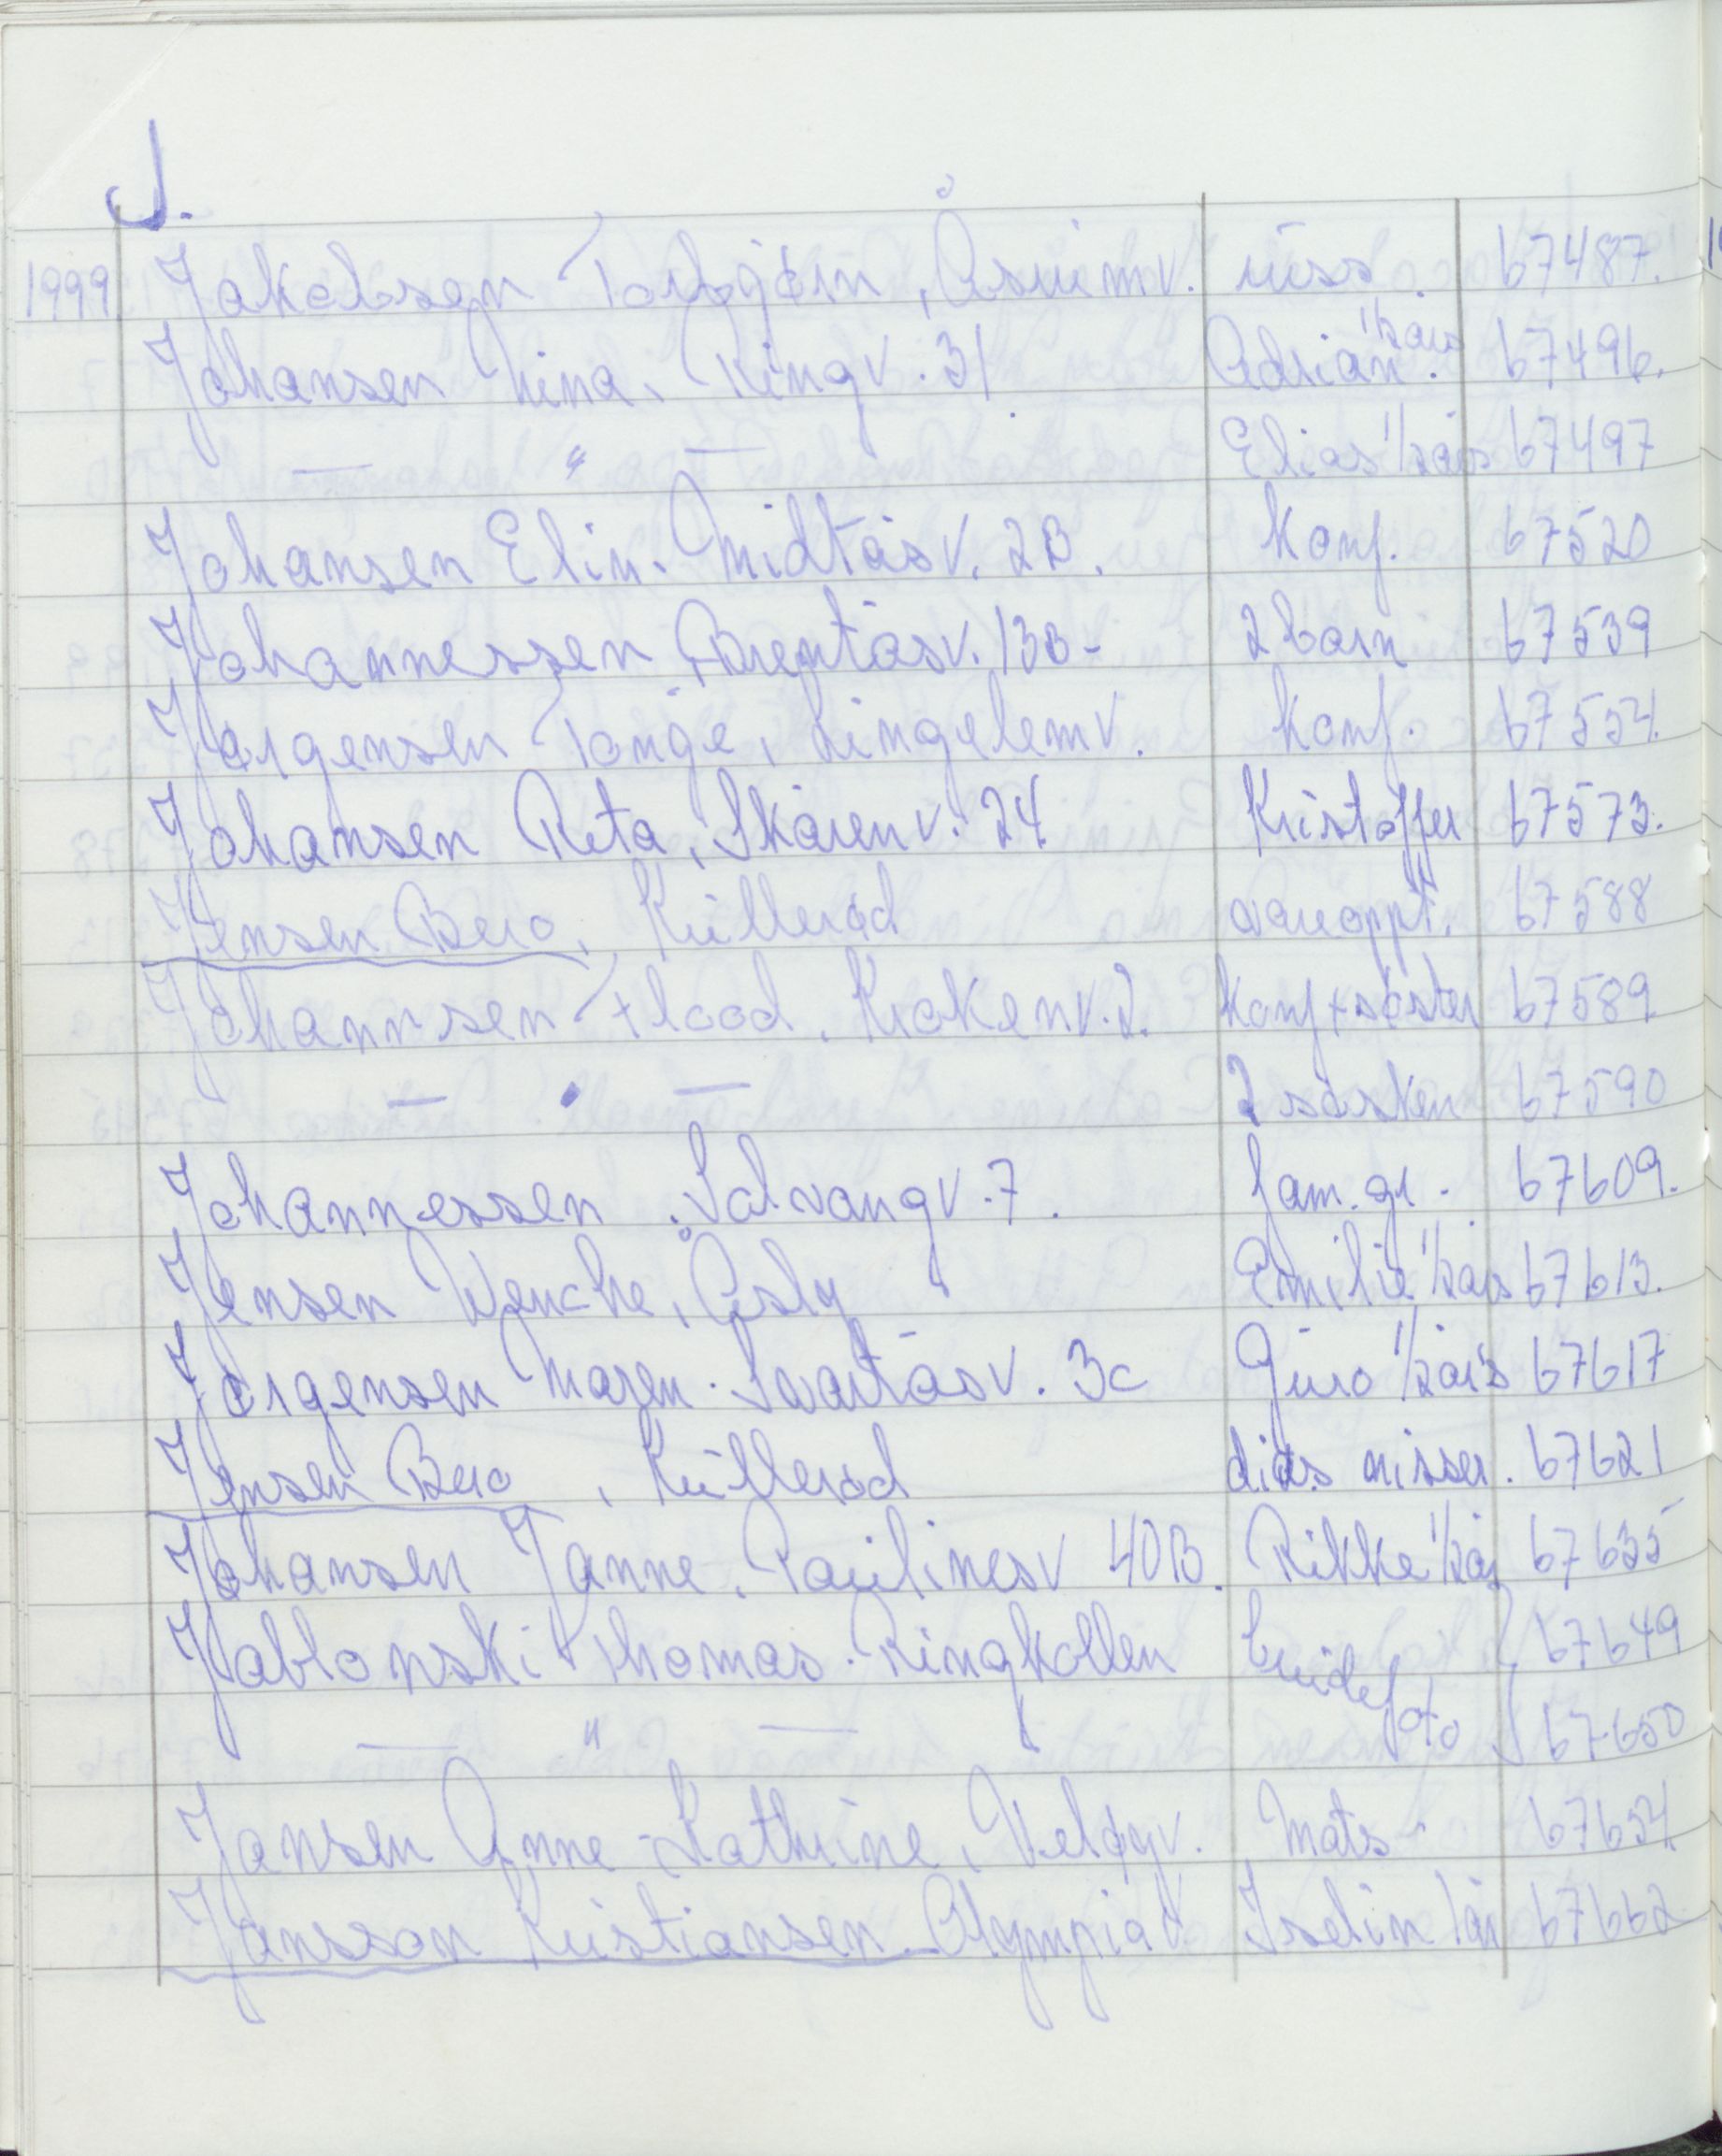 J.
1999. Jakobsen Torbjørn, Åsveimv. russ. 67487.
Johansen Nina, Ringv. 31 Adrian 1/2 års. 67496.
— " — Elias 1/2 års 67497
Johansen Elin. Midtåsv. 2B. konf. 67520
Johannessen, Brentåsv. 13B- 2 barn 67539
Jørgensen Tonje, Lingelemv. konf. 67554.
Johansen Reta, Skårenv. 24 Kristoffer 67573.
Jensen Bero, Kullerød vareoppt. 67588
Johannsen Flood, Krokenv. 2. konf + søster 67589
— " — 2 søsken 67590
Johannessen, Solvangv. 7. fam. gr. 67609.
Jensen Wenche, Åsly Emilie 1/2 års 67613.
Jørgensen Maren. Svartåsv. 3c Guro 1/2 års 67617
Jensen Bero, Kullerød dias nisser. 67621
Johansen Janne. Paulinesv 40B. Rikke 1/2 års 67635
Jablonski Thomas. Ringkollen brude 67649
— " — foto 67650
Jansen Anne-Kathrine, Veløyv. Mats 67654.
Jansson Kristiansen. Olympiav Iselin 1 år 67662